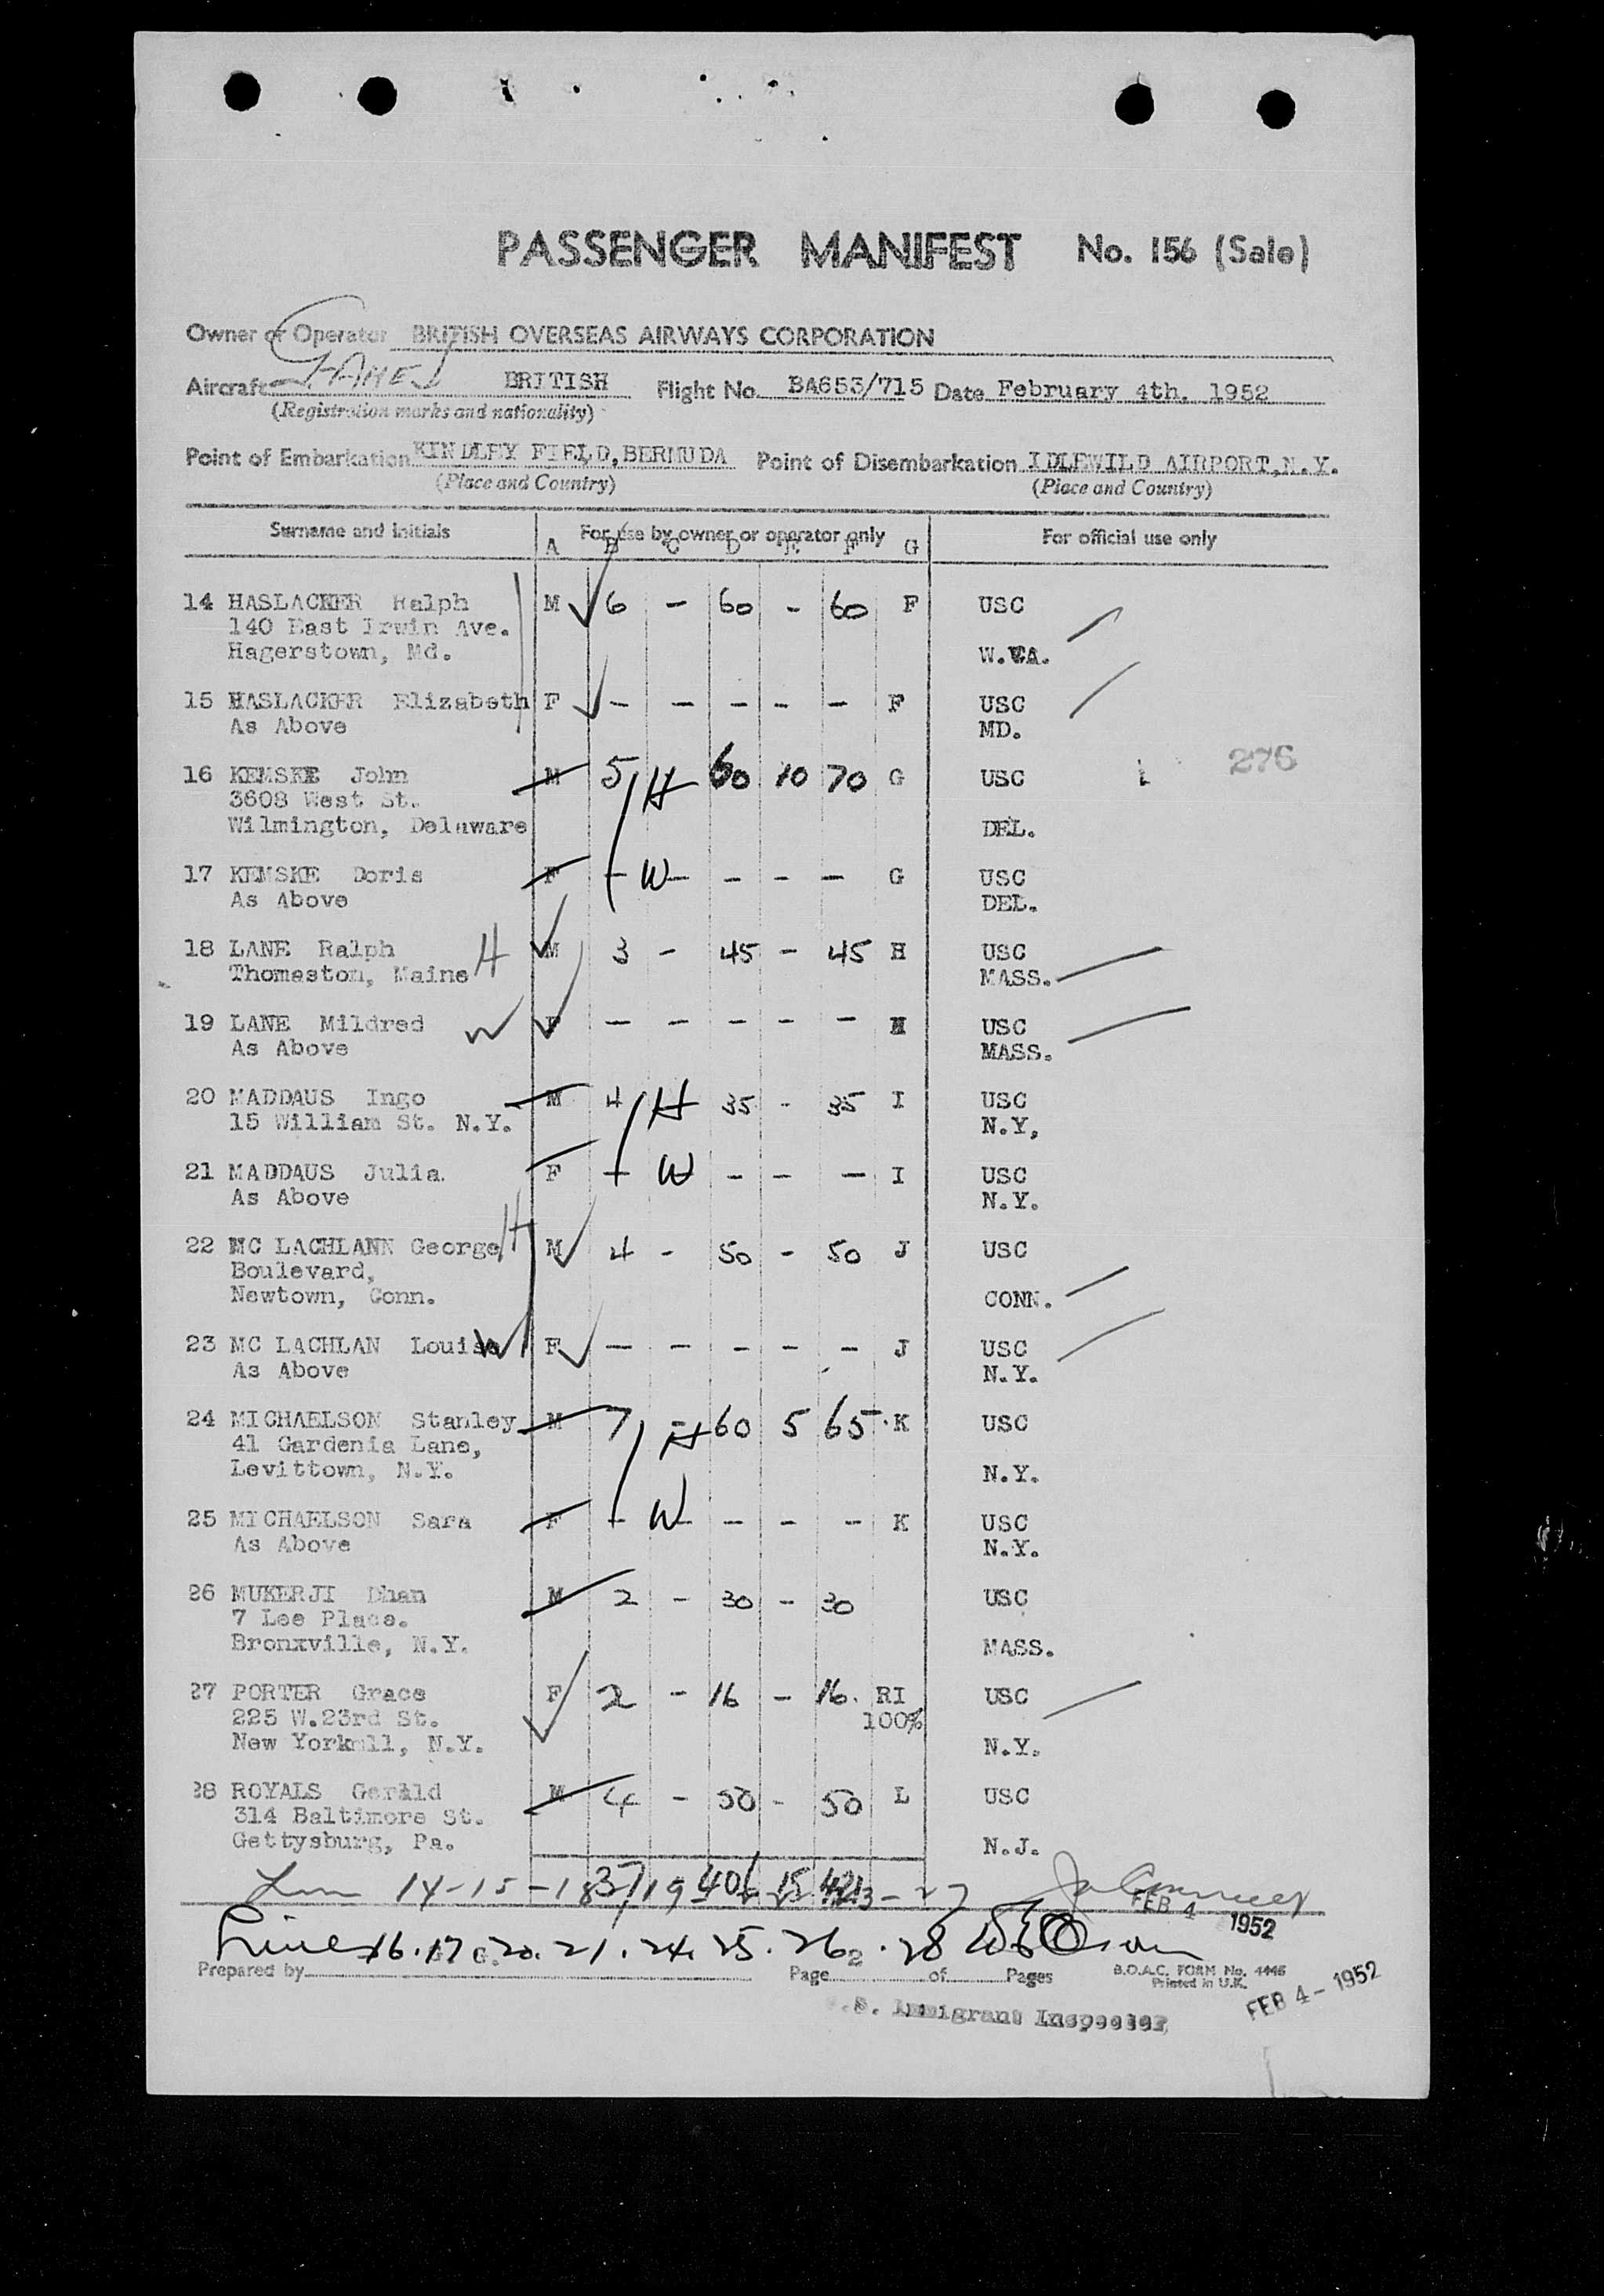 PASSENGER MANIFEST No. 156 (Sale)
Owner or Operator BRITISH OVERSEAS AIRWAYS CORPORATION
Aircraft G-AHEJ BRITISH Flight No. BA653/715 Date February 4th. 1952
(Registration marks and nationality)
Point of Embarkation KINDLEY FIELD, BERMUDA Point of Disembarkation IDLEWILD AIRPORT, N.Y.
(Place and Country) (Place and Country)
Surname and initials For use by owner or operator only For official use only
A B C D E F G
14 HASLACKER Ralph M 6 - 60 - 60 F USC
140 East Irwin Ave.
Hagerstown, Md. W.VA.
15 HASLACKER Elizabeth F - - - - - F USC
As Above MD.
16 KEMSKE John M 5 H 60 10 70 G USC 276
3608 West St.
Wilmington, Delaware DEL.
17 KEMSKE Doris F - W - - - G USC
As Above DEL.
18 LANE Ralph H M 3 - 45 - 45 H USC
Thomaston, Maine MASS.
19 LANE Mildred W F - - - - - H USC
As Above MASS.
20 MADDAUS Ingo M 4 H 35 - 35 I USC
15 William St. N.Y. N.Y,
21 MADDAUS Julia. F - W - - - I USC
As Above N.Y.
22 MC LACHLANN George H M 4 - 50 - 50 J USC
Boulevard,
Newtown, Conn. CONN.
23 MC LACHLAN Louise W F - - - - - J USC
As Above N.Y.
24 MICHAELSON Stanley M 7 H 60 5 65 K USC
41 Gardenia Lane,
Levittown, N.Y. N.Y.
25 MICHAELSON Sara F - W - - - K USC
As Above N.Y.
26 MUKERJI Dhan M 2 - 30 - 30 USC
7 Lee Place.
Bronxville, N.Y. MASS.
27 PORTER Grace F 2 - 16 - 16. RI USC
225 W.23rd St. 100%
New York 11, N.Y. N.Y.
28 ROYALS Gerald M 4 - 50 - 50 L USC
314 Baltimore St.
Gettysburg, Pa. N.J.
14-15-18 37 19 406 15 421 23-27
FEB 4 1952
Lines 16. 17. 20. 21. 24. 25. 26. 28
Prepared by Page 2 of Pages B.O.A.C. FORM No. 4446
Printed in U.K.
FEB 4 - 1952
.S. Immigrant Inspector